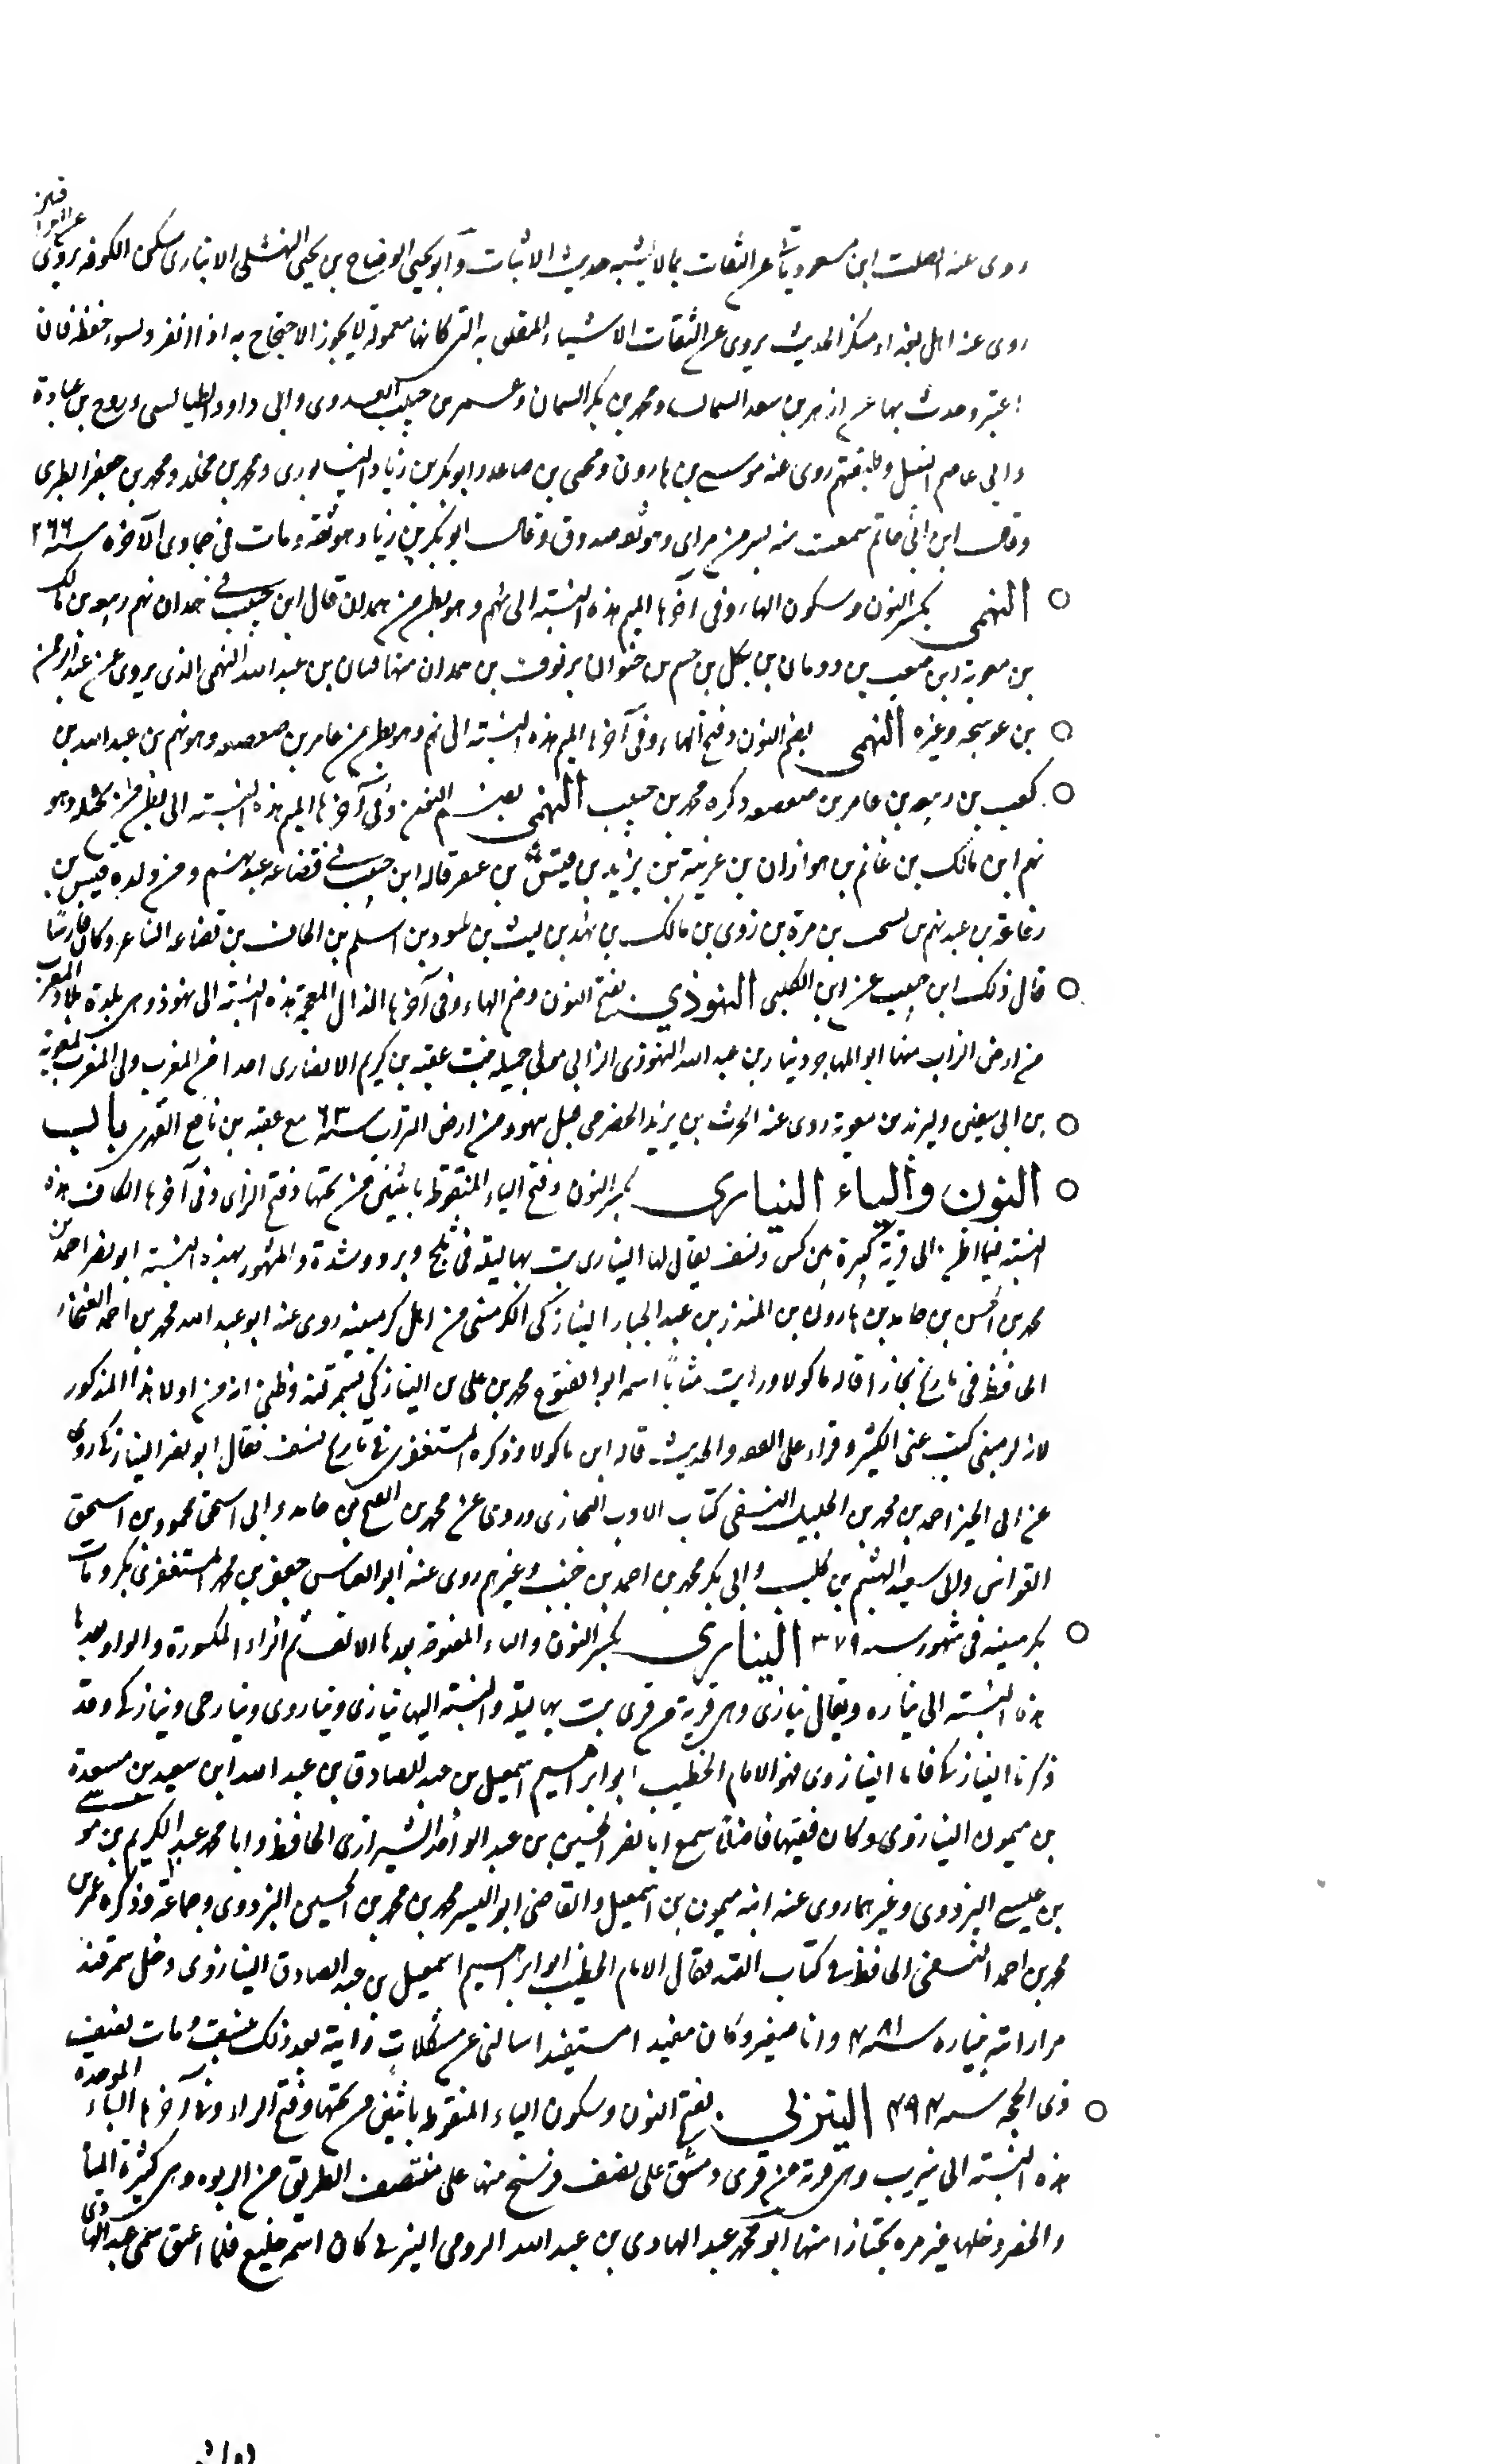 روى عنه الصلت ابن مسعود ياتى عن الثقات بمالا يشبه حديث الاثبات وابو يحيى الوضاح بن يحيى النهشلى الانبارى سكن الكوفه يروى عن العراقيين
روى عنه اهل بغداد منكر الحديث يروى عن الثقات الاشياء المقلوبه التى كانها معمولة لا يجوز الاحتجاج به اذا انفرد لسوء حفظه فان
اعتبر وحدث بها عن ازهر بن سعد السمان ومحمد بن بكر السمان وعمر بن حبيب العدوى وابى داود الطيالسى وروح بن عبادة
وابى عاصم النبيل وطبقتهم روى عنه موسى بن هارون ويحيى بن صاعد وابو بكر بن زياد النيسابورى ومحمد بن مخلد ومحمد بن جعفر المطيرى
وقال ابن ابى حاتم سمعت منه بسر من راى وهو ثقه صدوق وقال ابو بكر بن زياد هو ثقه ومات فى جمادى الآخره سنه ٢٦٦
النهمى بكسر النون وسكون الهاء وفى آخرها الميم هذه النسبته الى نهم وهو بطن من همدان قال ابن حبيب فى همدان نهم بن ربيعه بن مالك
بن معوية بن صعب بن دومان بن بكيل بن جشم بن خيوان بن نوف بن همدان منها قنان بن عبد الله النهمى الذى يروى عن عبد الرحمن
بن عوسجه وغيره النهمى بضم النون وفتح الهاء وفى آخرها الميم هذه النسبته الى نهم وهو بطن من عامر بن صعصعه وهو نهم بن عبد الله بن
كعب بن ربيعه بن عامر بن صعصعه ذكره محمد بن حبيب النهمى بضم النون وفى آخرها الميم هذه النسبته الى بطن من بجيله وهو
نهم ابن مالك بن غانم بن هوازان بن عرينة بن يزيد بن قيس بن عبقر قاله ابن حبيب فى قضاعه عبد نهم ومن ولده قيس بن
رفاعة بن عبد نهم بن مرة بن زوى بن مالك بن نهد بن ليث بن سود بن اسلم بن الحاف بن قضاعه الشاعر وكان فارسًا
قال ذلك ابن حبيب عن ابن الكلبى النهوذي بفتح النون وضم الهاء وفى آخرها الذال المعجمة هذه النسبته الى نهوذ وهى بلدة ببلاد المغرب
من ارض الزاب منها ابو المهاجر دينار بن عبد الله النهوذى الزابى مولى جميله بنت عقبه بن كريم الانصارى احد امراء المغرب ولى المغرب لمعوية
بن ابى سفين وليزيد بن معوية روى عنه الحرث بن يزيد الحضرمى قتل بنهوذ من ارض الزاب سنه ٦٣ مع عقبه بن نافع الفهرى باب
النون والياء النيازى بكسر النون وفتح الياء المنقوطه باثنتين من تحتها وفتح الزاى وفى آخرها الكاف هذه
النسبته فيما اظن الى قرية كبيرة بين كس ونسف يقال لها النيازى بت بها ليله فى ثلج وبرد وشدة والمشهور بهذه النسبته ابو نصر احمد بن
محمد بن الحسن بن حامد بن هارون بن المنذر بن عبد الجبار النيازكى الكرمينى من اهل كرمينيه روى عنه ابو عبد الله محمد بن احمد الغنجار
الحافظ فى تاريخ بخارا قاله ماكولا ورايت شابًا اسمه ابو الفتوح محمد بن على بن النيازكي بسمرقند وظنى انه من اولاد هذا المذكور
لانه كرمينى كتب عنى الكثير وقراء على الفقه والحديث قاله ابن ماكولا وذكره المستغفرى فى تاريخ نسف فقال ابو نصر النيازكى روى
عن ابى الخير احمد بن محمد بن الجليل النسفى كتاب الادب للبخارى وروى عن محمد بن الفتح بن حامد وابى اسحق محمود بن اسحق
القواس وابى سعيد الهيثم بن كليب وابى بكر محمد بن احمد بن خنب وغيرهم روى عنه ابو العباس جعفر بن محمد المستغفرى بكر ومات
بكرمينيه فى شهور سنه ٣٧٩ النيازى بكسر النون والياء المفتوحه بعدها الالف ثم الزاء المكسورة والواو بعدها
هذه النسبته الى نيازه ويقال نيازى وهى قرية من قرى بت بها ليلة والنسبته اليها نيازى ونيازوى ونيازجى ونيازكى وقد
ذكرنا النيازكى فاما النيازوى فهو الامام الخطيب ابو ابراهيم اسمعيل بن عبد الصادق بن عبد الله ابن سعيد بن مسعدة
بن ميمون النيازوى وكان فقيها فاضلًا سمع ابا نصر الحسين بن عبد الواحد الشيرازى الحافظ وابا محمد عبد الكريم بن موسى
بن عيسى البزدوى وغيرهما روى عنه ابنه ميمون بن اسمعيل والقاضى ابو اليسر محمد بن محمد بن الحسين البزدوى وجماعة وذكره عمر بن
محمد بن احمد النسفى الحافظ فى كتاب القند فقال الامام الخطيب ابو ابراهيم اسمعيل بن عبد الصادق النيازوى دخل سمرقند
مرارا بنيازه سنه ٤٨١ وانا صغير وكان مفيدا مستفيدا سالنى عن مشكلات ومات بنسف
ذى الحجه سنه ٤٩٤ النيربى بفتح النون وسكون الياء المنقوطه باثنتين من تحتها وفتح الراء وفى آخرها الباء الموحدة
هذه النسبته الى نيرب وهى قرية من قرى دمشق على نصف فرسخ منها على منتصف الطريق من الربوه وهى كثيرة المياه
والخضر دخلها غير مره مجتازا منها ابو محمد عبد الهادى بن عبد الله الرومى النيربى كان اسمه خليع فلما اعتق سمى عبد الهادى